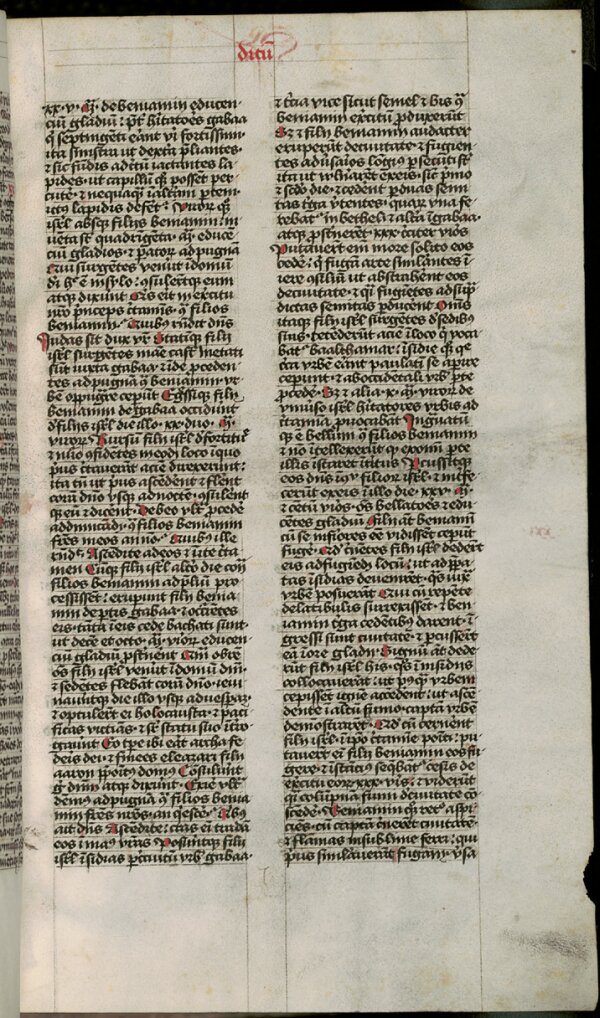 dicum
xx·v· M· de beniamin educen
ciu gladiu: pt hitatoes gabaa
q septingeti eant viri fortissimi
ita sinistra ut dextra pliantes
et sic fundis ad ctum iactantes la
pides· ut capillu qs posset per
cute· et nequaqm i altam ptem
ictus lapidis defert Viroru qs
isrl absqs filiis beniamin: in
veta st quadrigeta· M· educe
ciu gladios· et pator ad pugna
Qui surgetes venut i domu
di h e in sylo: gsuleratqs eum
atqs dixunt Qis eit in excitu
nro pnceps ctamis· q filios
beniamin· Quibus rndit dns
Judas sit dux vr Statiqs filii
isrl surgetes mae cast metati
sut iuxta gabaa· et ide pceden
tes ad pugna q beniamin· vr
be oppugre ceput Egssiqs filii
beniamin de gabaa occidunt
d filiis isrl die illo· xx· duo· M·
viroru Rursu filii isrl et fortitue
et nuo gfidetes in eode loco i quo
pus ctauerat acie direxerunt:
ita tn ut pus ascedent et flent
cora dno usqs ad nocte· gsulent
qs eu et dicent· Debeo ult pcede
ad dimicadu· q filios beniamin
fres meos an no· Quibus ille
rnd: Ascedite ad eos et inite cta
men Cuqs filii isrl alto die con
filios beniamin ad pliu pro
cessisset: erupunt filii benia
min de ptis gabaa· et occuretes
eis· tata i eis cede bachati sunt·
ut dece et octo· M· viror educen
ciu gladiu pstnent Qm obre
oes filii isrl venut i domu dni·
et sedetes flebat cora dno· ieiu
nauitqs die illo usqs ad uespam·
et optulert ei holocausta· et paci
ficas victias· et sr statu suo itro
gauit Eo tpe ibi eat archa fe
deis dei· et finees eleazari filii
aaron ppoitus domus Cosulunt
g dnm· atqs dixunt· Exie ult
demus ad pugna q filios benia
min fres nros· an qesce· Quibus
ait dns Ascedite: cras ei trada
eos i manus vras Posuntqs filii
isrl isidias p circuitu urbis gabaa·
et tcia vice sicut semel et bis q
beniamin excitu pduxerut
Sz et filii beniamin audacter
eruperut de ciuitate· et fugien
tes adusaios longius psecuti st
ita ut vulnaret ex eis· sic pmo
et scdo die· et cedent p duas semi
tas tga vtentes· quaru vna fe
rebat in bethel· et alta i gabaa·
atqs pstneret· xxx· cciter viros
Putauert em more solito eos
cede: q fuga arte similantes i
iere gsiliu ut abstrahent eos
de ciuitate· et qi fugietes ad sup
dictas semitas pducent Oms
itaqs filii isrl surgetes d sedibus
suis· tetederut acie i loco q voca
bat baalthamar: isidie qs q
cca urbe eant paulati se apire
cepunt· et ab occidetali urbis pte
pcede· Sz et alia· x· M· viror de
vniuso isrl hitatores urbis ad
ctamia puocabat Inguatu
qs e bellum q filios beniamin
et no itellexerut qs ex omi pte
illis istaret iteritus Pcussitqs
eos dns i gspectu filior isrl· et intfe
cerut ex eis i illo die· xxv· M·
et cetu viros· os bellatoes et edu
cetes gladiu Filii at beniami
cu se infiores ee vidisset ceput
fuge· Qd cnetes filii isrl dedert
eis ad fugiedu locu: ut ad ppa
tas isidias deuenirent· qs iux
urbe posuerat Qui cu repete
de latibulis surexisset· et ben
iamin tga cedetibus darent· i
gressi sunt ciuitate· et pcusserut
ea i ore gladii Signu at dede
rut filii isrl his· qs i insidiis
collocauerat: ut pusqs vrbem
cepisset igne accedent: ut asce
dente i altu fumo· capta urbe
demostraret· Qd cu cernent
filii isrl· i ipo ctamie poiti: pu
tauert ei filii beniamin eos fu
gere· et istatius seqbat· cesis de
excitu eor· xxx· viris: et viderut
qi colupna fumi d ciuitate co
scede· Beniamin qs retro aspi
cies· cu capta cneret ciuitate·
et flamas in sublime ferri: qui
pus similauerat fugam· vsa